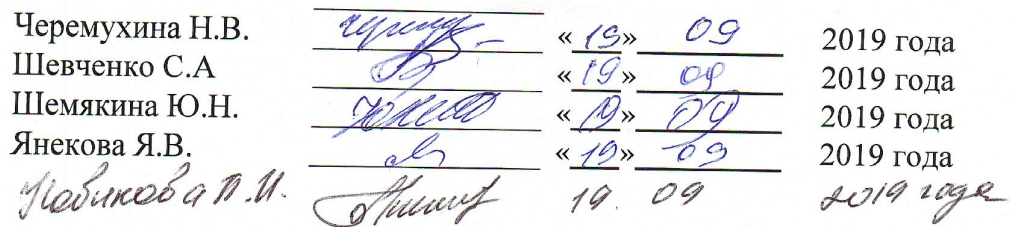 Черемухина Н.В. «19» 09 2019 года
Шевченко С.А «19» 09 2019 года
Шемякина Ю.Н. «19» 09 2019 года
Янекова Я.В. «19» 09 2019 года
П.И. 19. 09 2019 года